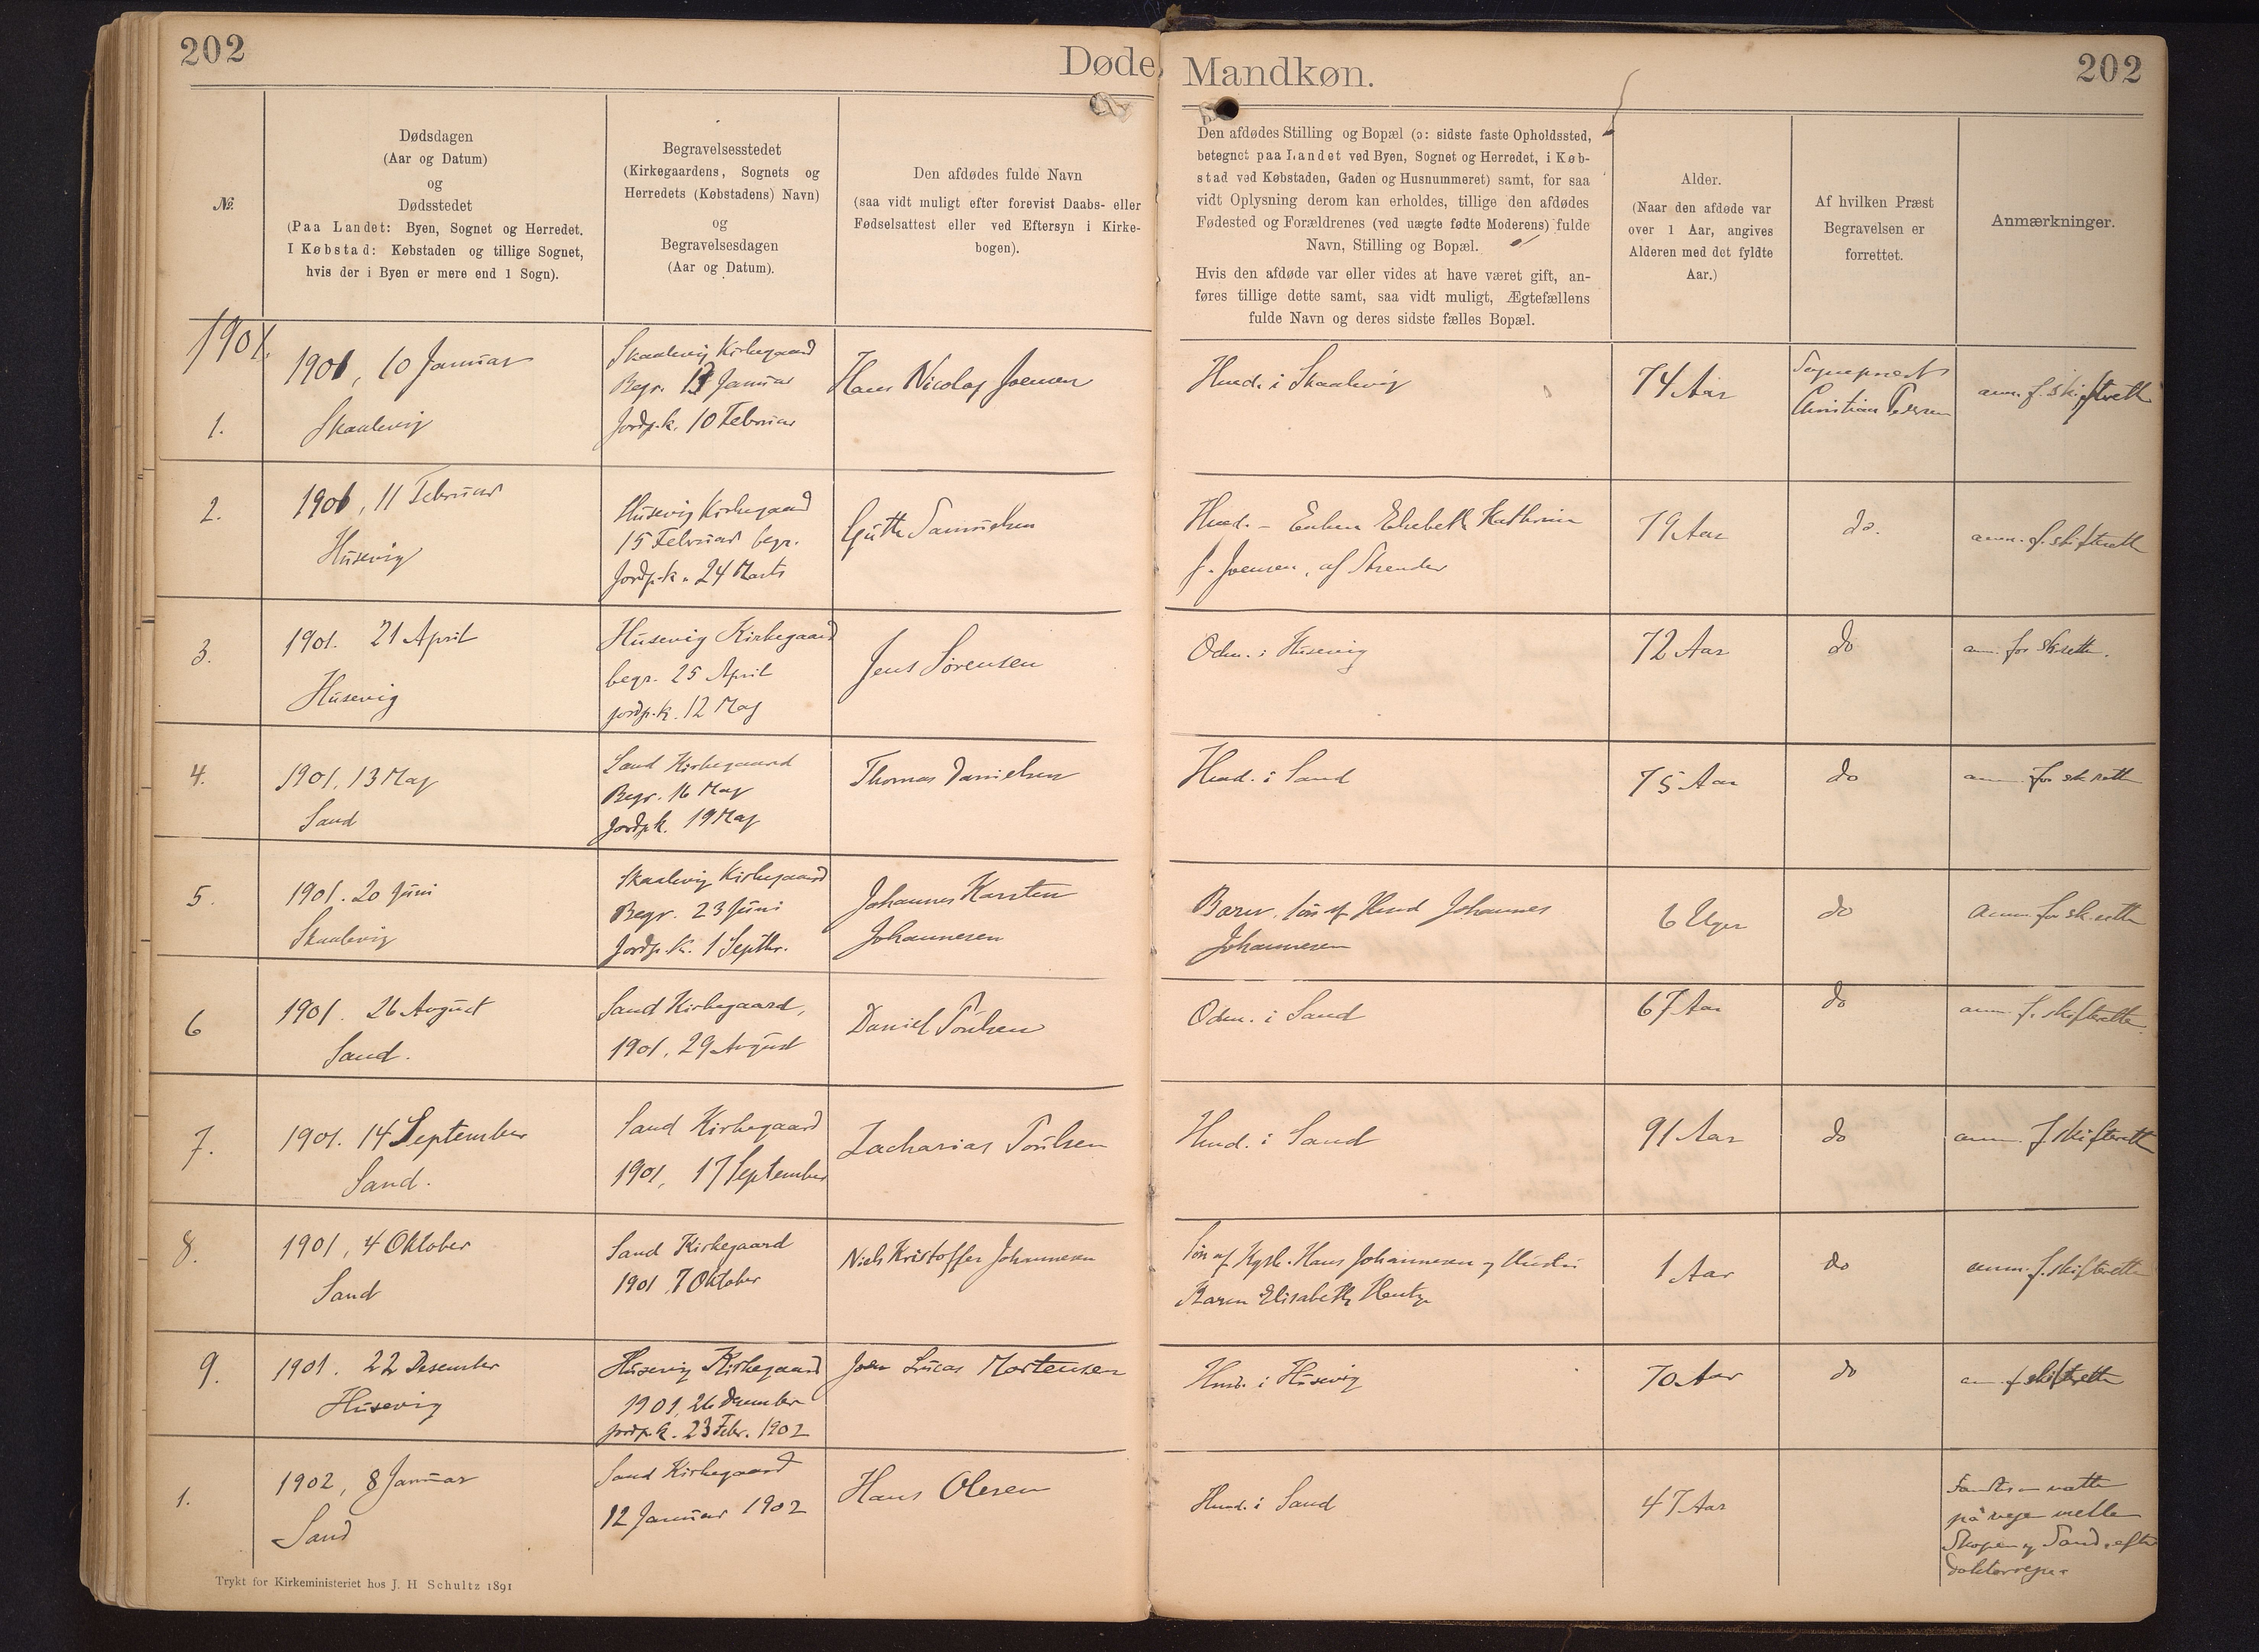 202
Døde
Mandkøn.
202
№
Dødsdagen
(Aar og Datum)
og
Dødsstedet
(Paa Landet: Byen, Sognet og Herredet.
I Købstad: Købstaden og tillige Sognet,
hvis der i Byen er mere end 1 Sogn).
Begravelsesstedet
(Kirkegaardens, Sognets og
Herredets (Købstadens) Navn)
og
Begravelsesdagen
(Aar og Datum).
Den afdødes fulde Navn
(saa vidt muligt efter forevist Daabs- eller
Fødselsattest eller ved Eftersyn i Kirke-
bogen).
Den afdødes Stilling og Bopæl (ɔ: sidste faste Opholdssted,
betegnet paa Landet ved Byen, Sognet og Herredet, i Køb-
stad ved Købstaden, Gaden og Husnummeret) samt, for saa
vidt Oplysning derom kan erholdes, tillige den afdødes
Fødested og Forældrenes (ved uægte fødte Moderens) fulde
Navn, Stilling og Bopæl.
Hvis den afdøde var eller vides at have været gift, an-
føres tillige dette samt, saa vidt muligt, Ægtefællens
fulde Navn og deres sidste fælles Bopæl.
Alder.
(Naar den afdøde var
over 1 Aar, angives
Alderen med det fyldte
Aar.)
Af hvilken Præst
Begravelsen er
forrettet.
Anmærkninger.
1901.
1.
1901, 10 Januar
Skaalevig
Skaalevig Kirkegaard
Begr. 13 Januar
Jordp.k. 10 Februar
Hans Nicolaj Joensen
Husd. i Skaalevig
74 Aar
Sognepræst
Christian Pedersen
anm. f. skifteretten
2.
1901, 11 Februar
Husevig
Husevig Kirkegaard
15 Februar begr.
Jordp.k. 24 Marts
Gutte Samuelsen
Husd. - Enken Elsebeth Kathrine
f. Joensen, af Strender
79 Aar
do.
anm. f. skifteretten
3.
1901. 21 April
Husevig
Husevig Kirkegaard
begr. 25 April
jordp.k. 12 Maj
Jens Sørensen
Odm. i Husevig
72 Aar
do
anm. for sk.retten.
4.
1901. 13 Maj
Sand
Sand Kirkegaard
Begr. 16 Maj
Jordp.k. 19 Maj
Thomas Danielsen
Husd. i Sand
75 Aar
do
anm. for sk.retten
5.
1901. 20 Juni
Skaalevig
Skaalevig Kirkegaard
Begr. 23 Juni
Jordp.k. 1 Septbr.
Johannes Karsten
Johannesen
Barn, søn af Husd Johannes
Johannesen
6 Uger
do
anm. for sk.retten
6
1901. 26 August
Sand.
Sand Kirkegaard,
1901, 29 August
Daniel Poulsen
Odm. i Sand
67 Aar
do
anm. f. skifteretten
7.
1901. 14 September
Sand.
Sand Kirkegaard
1901, 17 September
Zacharias Poulsen
Husd. i Sand
91 Aar
do
anm. f. skifteretten
8.
1901, 4 Oktober
Sand
Sand Kirkegaard
1901, 7 Oktober
Niels Kristoffer Johannesen
Søn af Hans Johannesen og Hustru
Karen Elisabeth Hentze
1 Aar
do
anm. f. skifteretten
9.
1901. 22 Desember
Husevig
Husevig Kirkegaard
1901, 26 December
jordp.k. 23 Febr. 1902
Joen Lucas Mortensen
Husd. i Husevig
70 Aar
do
anm. f skifteretten
1.
1902, 8 Januar
Sand
Sand Kirkegaard
12 Januar 1902
Hans Olesen
Husd. i Sand
47 Aar
natten
på vejen mellem
Skopen og Sand, efter
Trykt for Kirkeministeriet hos J. H Schultz 1891